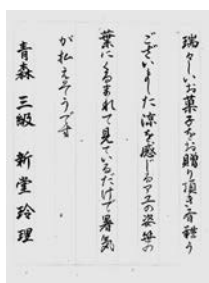 瑞々しいお菓子をお贈り頂き有難う
ございました涼を感じる
の姿笹の
葉にくるまれて見ているだけで暑気
が払えそうです
青森 三級 新堂玲理